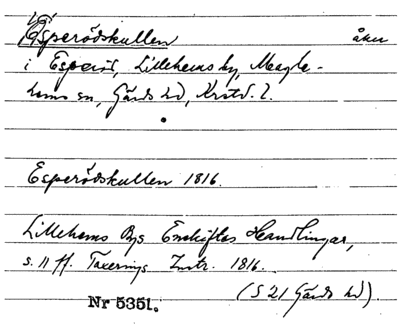 Esperödskullen åker
i Esperöd, Lillehems by, Maglehems sn, Gärds hd, Krstd. l.
Esperödskullen 1816.
Lillehems Bys Enskiftes Handlingar,
s. 11 ff. Taxerings Instr. 1816.
(S 21 Gärds hd).
Nr 5351.